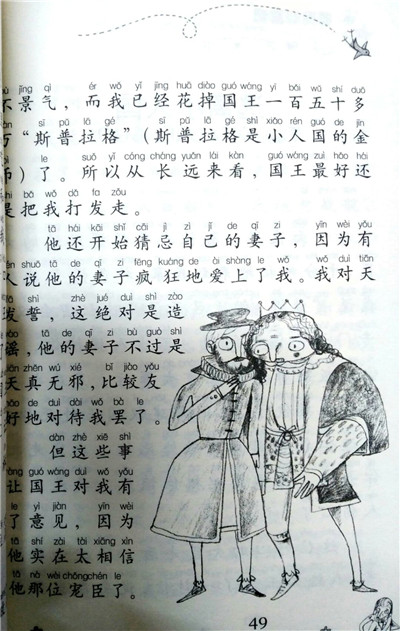 jǐng qì ér wǒ yǐ jīng huā diào guó wáng yì bǎi wǔ shí duō
不景气，而我已经花掉国王一百五十多
sī pǔ lā gé sī pǔ lā gé shì xiǎo rén guó de jīn
万“斯普拉格”（斯普拉格是小人国的金
le suǒ yǐ cóng cháng yuǎn lái kàn guó wáng zuì hǎo hái
币）了。所以从长远来看，国王最好还
shì bǎ wǒ dǎ fā zǒu
是把我打发走。
tā hái kāi shǐ cāi jì zì jǐ de qī zi yīn wèi yǒu
他还开始猜忌自己的妻子，因为有
rén shuō tā de qī zi fēng kuáng de ài shàng le wǒ wǒ duì tiān
人说他的妻子疯狂地爱上了我。我对天
shì zhè jué duì shì zào
发誓，这绝对是造
tā de qī zi bú guò shì
谣，他的妻子不过是
tiān zhēn wú xié bǐ jiào yǒu
天真无邪，比较友
hǎo de duì dài wǒ bà le
好地对待我罢了。
dàn zhè xiē shì
但这些事
ràng guó wáng duì wǒ yǒu
让国王对我有
le yì jiàn yīn wèi
了意见，因为
tā shí zài tài xiāng xìn
他实在太相信
tā nà wèi chǒng chén le
他那位宠臣了。
49